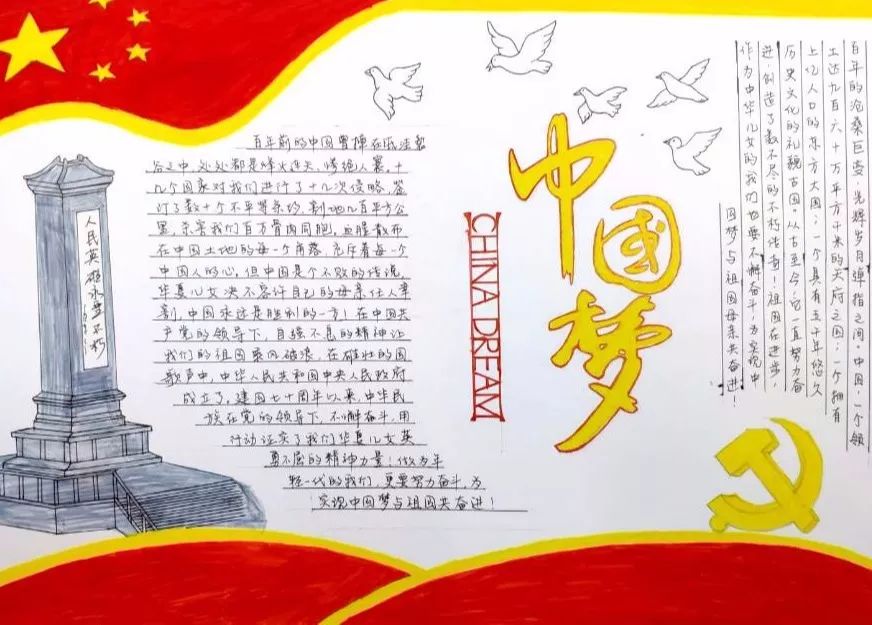 人民英雄永垂不朽
百年前的中国曾
谷之中,处处都是烽火连天,惨绝人寰.十
几个国家对我们进行了十几次侵略,签
订了数十个不平等条约,割地几百平方公
里,杀害我们百万骨肉同胞,血腥散布
在中国土地的每一个角落,充斥着每一个
中国人的心,但中国是个不败的传说,
华夏儿女决不容许自己的母亲任人宰
割,中国永远是胜利的一方!在中国共
产党的领导下,自强不息的精神让
我们的祖国乘风破浪,在雄壮的国
歌声中,中华人民共和国中央人民政府
成立了,建国七十周年以来,中华民
族在党的领导下,不懈奋斗,用
行动证实了我们华夏儿女英
勇不屈的精神力量!做为年
轻一代的我们,更要努力奋斗,为
实现中国梦与祖国共奋进!
CHINA DREAM
中国梦
百年的沧桑巨变,光辉岁月弹指之间。中国,一个领
土达九百六十万平方千米的天府之国;一个拥有
上亿人口的东方大国;一个具有五千年悠久
历史文化的礼魏古国。从古至今,它一直努力奋
进,创造了数不尽的不朽传奇!祖国在进步,
作为中华儿女的我们也要不懈奋斗,为实现中
国梦与祖国母亲共奋进!